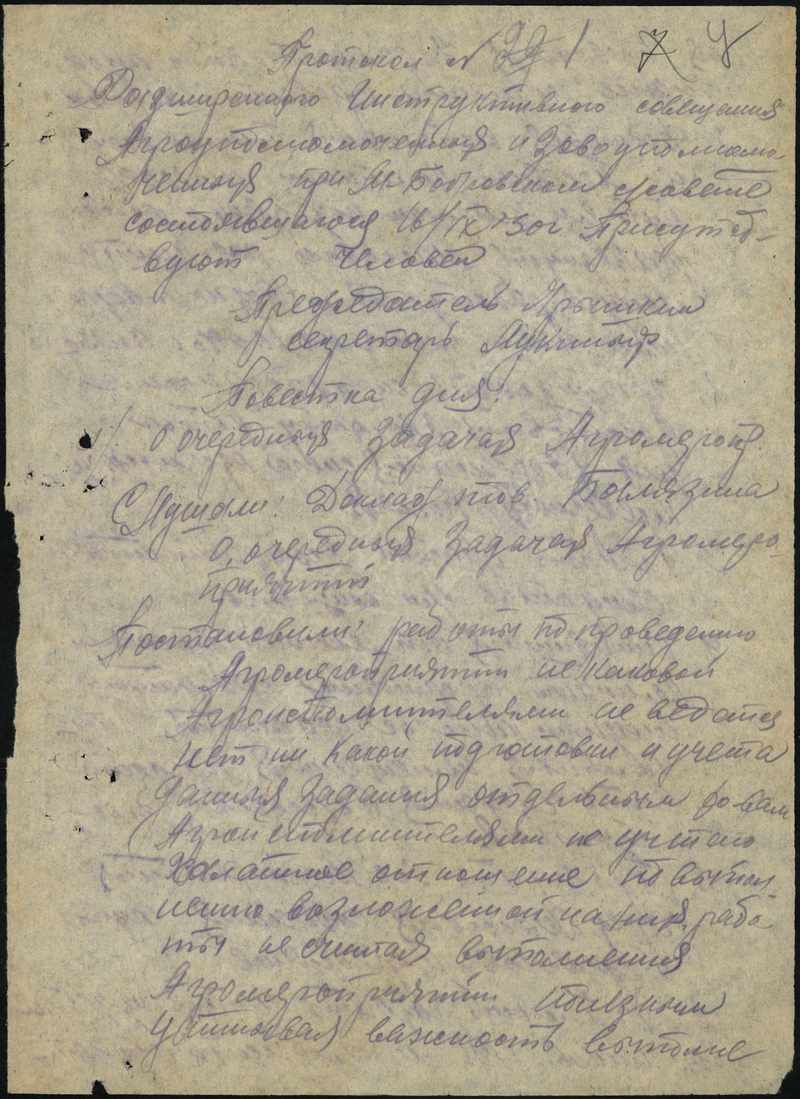 Протокол N 22/1 7 4
Расширенного Инструктивного совещания
Агроуполномоченных и Завоуполномо
ченных при М-Бобровском с/совете
состоявшагося 16/IX-30г Присутст-
вуют человек
Председатель Ярышкин
секретарь
Повестка дня:
1/. О очередных Задачах Агромероп.
Слушали: Доклад тов.
О очередных Задачах Агромеро-
приятий
Постановили: работы по проведению
Агромероприятий не каковой
Агроисполнителями не ведется
нет ни какой подготовки и учета
данных Задания отдельным
Агроисполнителями не учтено
Халатное отношение по выпол
нению возложенной на них рабо
ты не считая выполнения
Агромероприятий полезным
Учитывая важность выполне